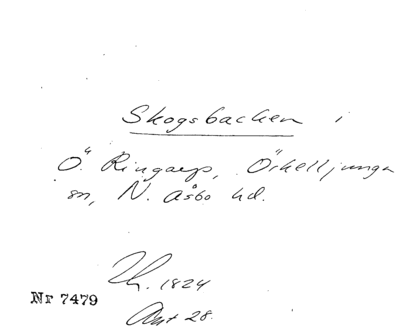 Skogsbacken i
Ö. Ringarp, Örkelljunga
sn, N. Åsbo hd.
Th. 1824
Nr 7479
Ant 28.